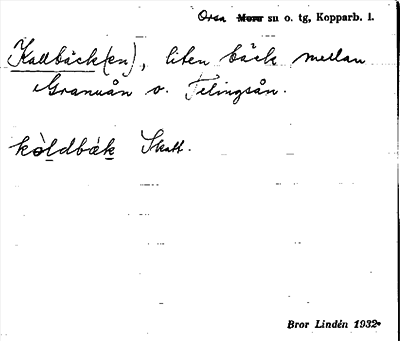 Orsa Mora sn o. tg, Kopparb. l.
Kallbäck(en), liten bäck mellan
Granuån o. Felingsån.
kòldbæk Skatt.
Bror Lindén 1932